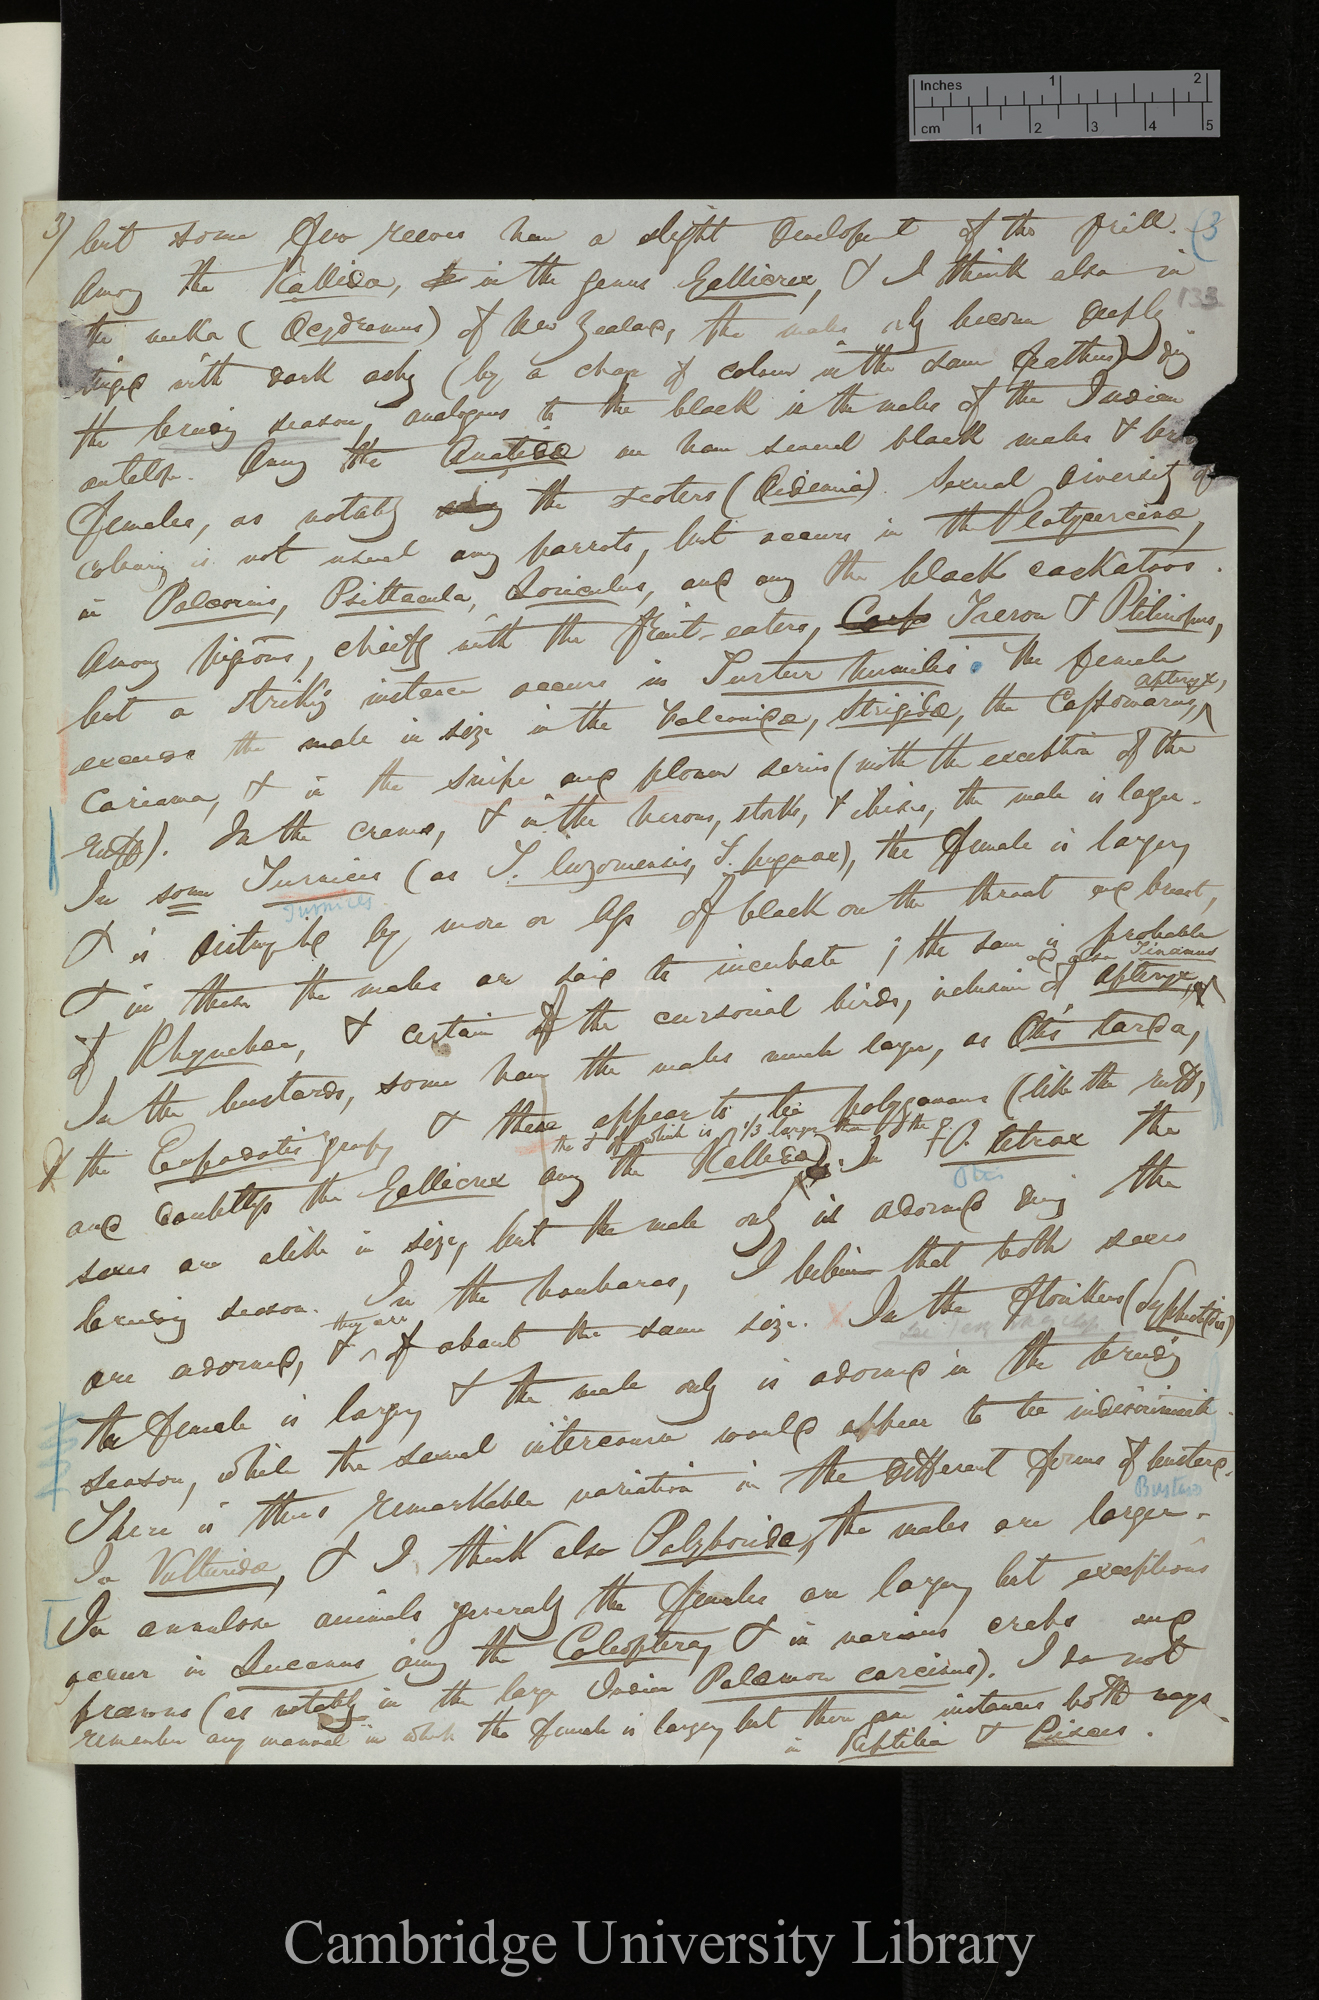 Inches 1 2
cm 1 2 3 4 5
3) but some few reeves have a slight development of the frill. (3
Among the Rallidæ, in the genus Gallicrex, & I think also in
133
the weka (Ocydromus) of New Zealand, the males only become deeply
tinged with dark ashy (by a change of colour in the same feathers) during
the breeding season, analogous to the black in the males of the Indian
antelope. Among the Anatidæ we have several black males & brown
females, as notably among the scoters (Oidemia). Sexual diversity of
colouring is not usual among parrots, but occurs in the Platycercinæ,
in Palæornis, Psittacula, Loriculus, and among the black cockatoos.
Among pigeons, chiefly with the fruit-eaters, Treron & Ptilinopus,
but a striking instance occurs in Turtur humilis. The female
apteryx,
exceeds the male in size in the Falconidæ, Strigidæ, the Cassowaries,
Cariama, & in the snipe and plover series (with the exception of the
ruff). In the cranes, & in the herons, storks, & ibises, the male is larger.
In some Turnices (as T. luzoniensis, T. pugnax), the female is larger,
Turnices
& is distinguished by more or less of black on the throat and breast,
& in these the males are said to incubate; the same is probable
and also Tinamus
of Rhynchæa, & certain of the cursorial birds, inclusive of Apteryx,
In the bustards, some have the males much larger, as Otis tarda,
& the Eupodotis group, & these appear to be polygamous (like the ruff,
the ♂ of which is 1/3 larger than the ♀
and doubtless the Gallicrex among the Rallidæ). In O. tetrax the
Otis
sexes are alike in size, but the male only is adorned during the
breeding season. In the houbaras, I believe that both sexes
they are
are adorned, & of about the same size. In the florikens (Sypheotides)
the female is larger, & the male only is adorned in the breeding
season, while the sexual intercourse would appear to be indiscriminate.
There is thus remarkable variation in the different forms of bustard.
Bustard
In Vulturidæ, & I think also Polyboridæ, the males are larger.
In annulose animals generally the females are larger, but exceptions
occur in Lucanus among the Coleoptera, & in various crabs and
prawns (as notably in the large Indian Palæmon carcinus). I do not
remember any mammal in which the female is larger, but there are instances both ways
in Reptilia & Pisces.
Cambridge University Library